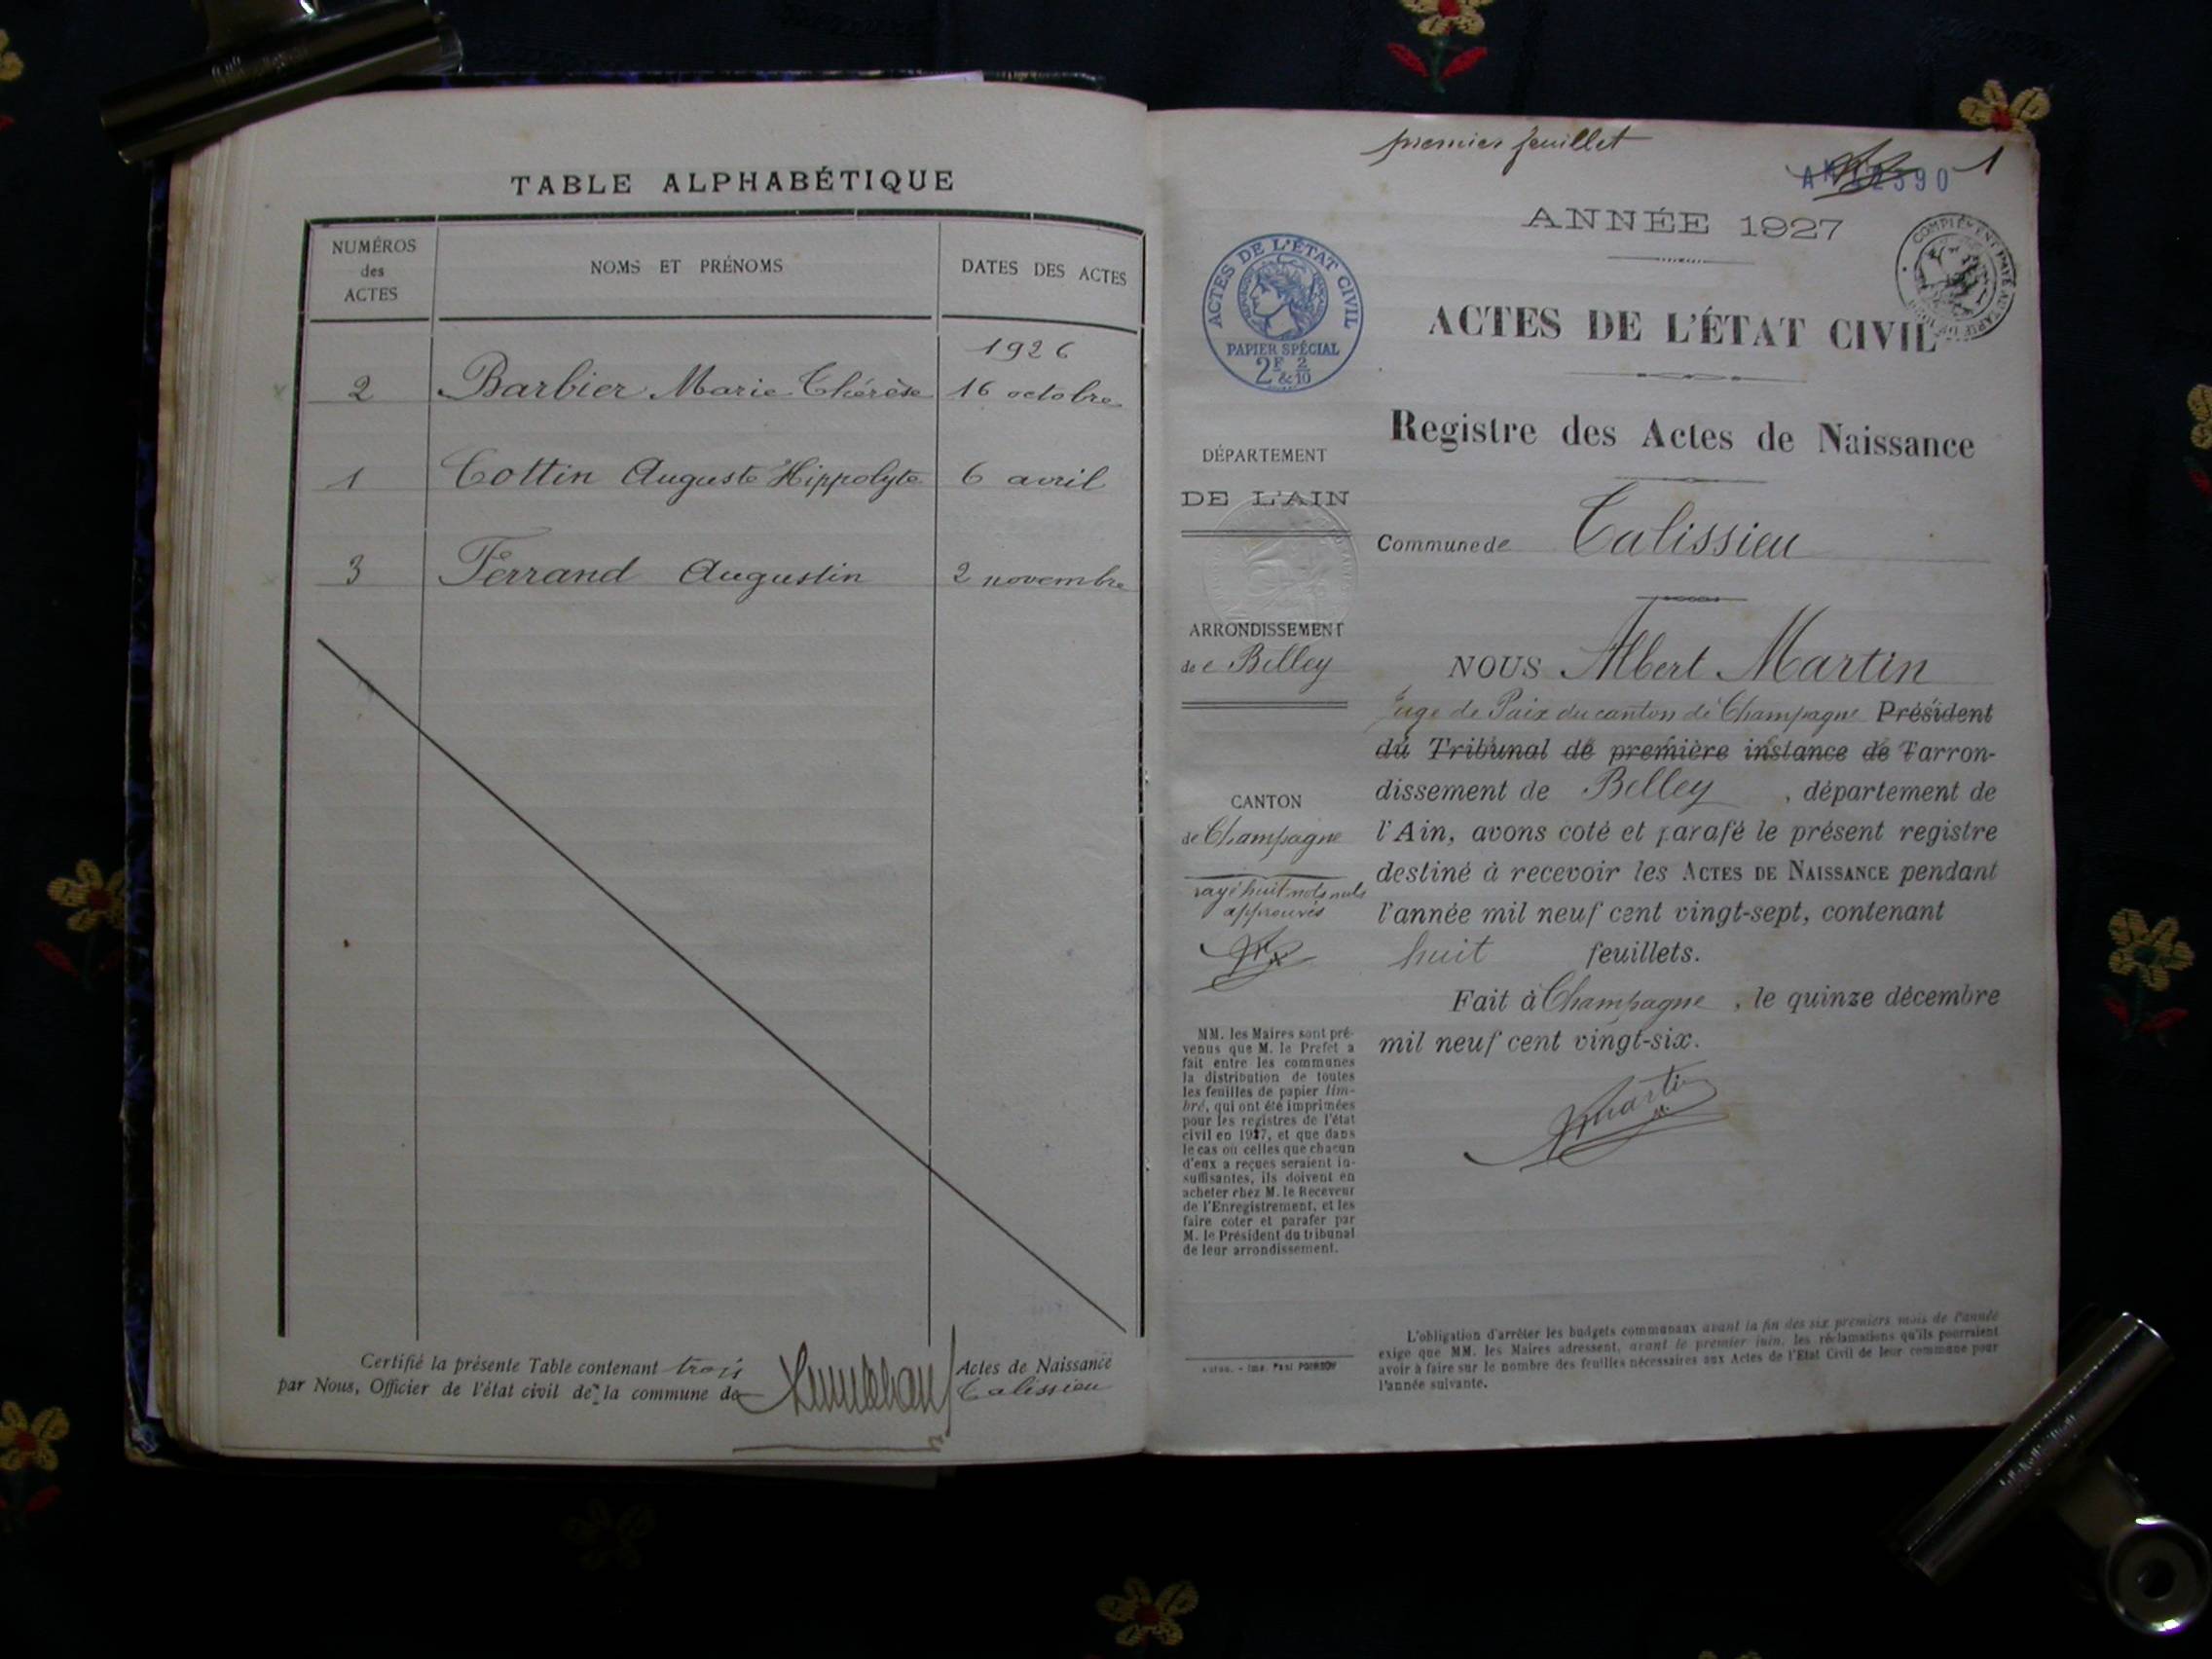 TABLE ALPHABÉTIQUE
NUMÉROS
des
ACTES
NOMS ET PRÉNOMS
DATES DES ACTES
1926
2 Barbier Marie Thérèse 16 octobre
1 Cottin Auguste Hippolyte 6 avril
3 Ferrand Augustin 2 novembre
Certifié la présente Table contenant trois Actes de Naissance
par Nous, Officier de l'état civil de la commune de Talissieu
premier feuillet
1
ANNÉE 1927
ACTES DE L'ÉTAT CIVIL
PAPIER SPÉCIAL
2F & 2/10
ACTES DE L'ÉTAT CIVIL
Registre des Actes de Naissance
DÉPARTEMENT
DE L'AIN
Commune de Talissieu
ARRONDISSEMENT
de Belley
CANTON
de Champagne
rayé huit mots nuls
approuvés
MM. les Maires sont pré-
venus que M. le Prefet a
fait entre les communes
la distribution de toutes
les feuilles de papier tim-
bré, qui ont été imprimées
pour les registres de l'état
civil en 1927, et que dans
le cas où celles que chacun
d'eux a reçues seraient in-
suffisantes, ils doivent en
acheter chez M. le Receveur
de l'Enregistrement, et les
faire coter et parafer par
M. le Président du tribunal
de leur arrondissement.
NOUS Albert Martin
Juge de Paix du canton de Champagne Président
du Tribunal de première instance de l'arron-
dissement de Belley, département de
l'Ain, avons coté et parafé le présent registre
destiné à recevoir les ACTES DE NAISSANCE pendant
l'année mil neuf cent vingt-sept, contenant
huit feuillets.
Fait à Champagne, le quinze décembre
mil neuf cent vingt-six.
Martin
L'obligation d'arrêter les budgets communaux avant la fin des six premiers mois de l'année
exige que MM. les Maires adressent, avant le premier juin, les réclamations qu'ils pourraient
avoir à faire sur le nombre des feuilles nécessaires aux Actes de l'Etat Civil de leur commune pour
l'année suivante.